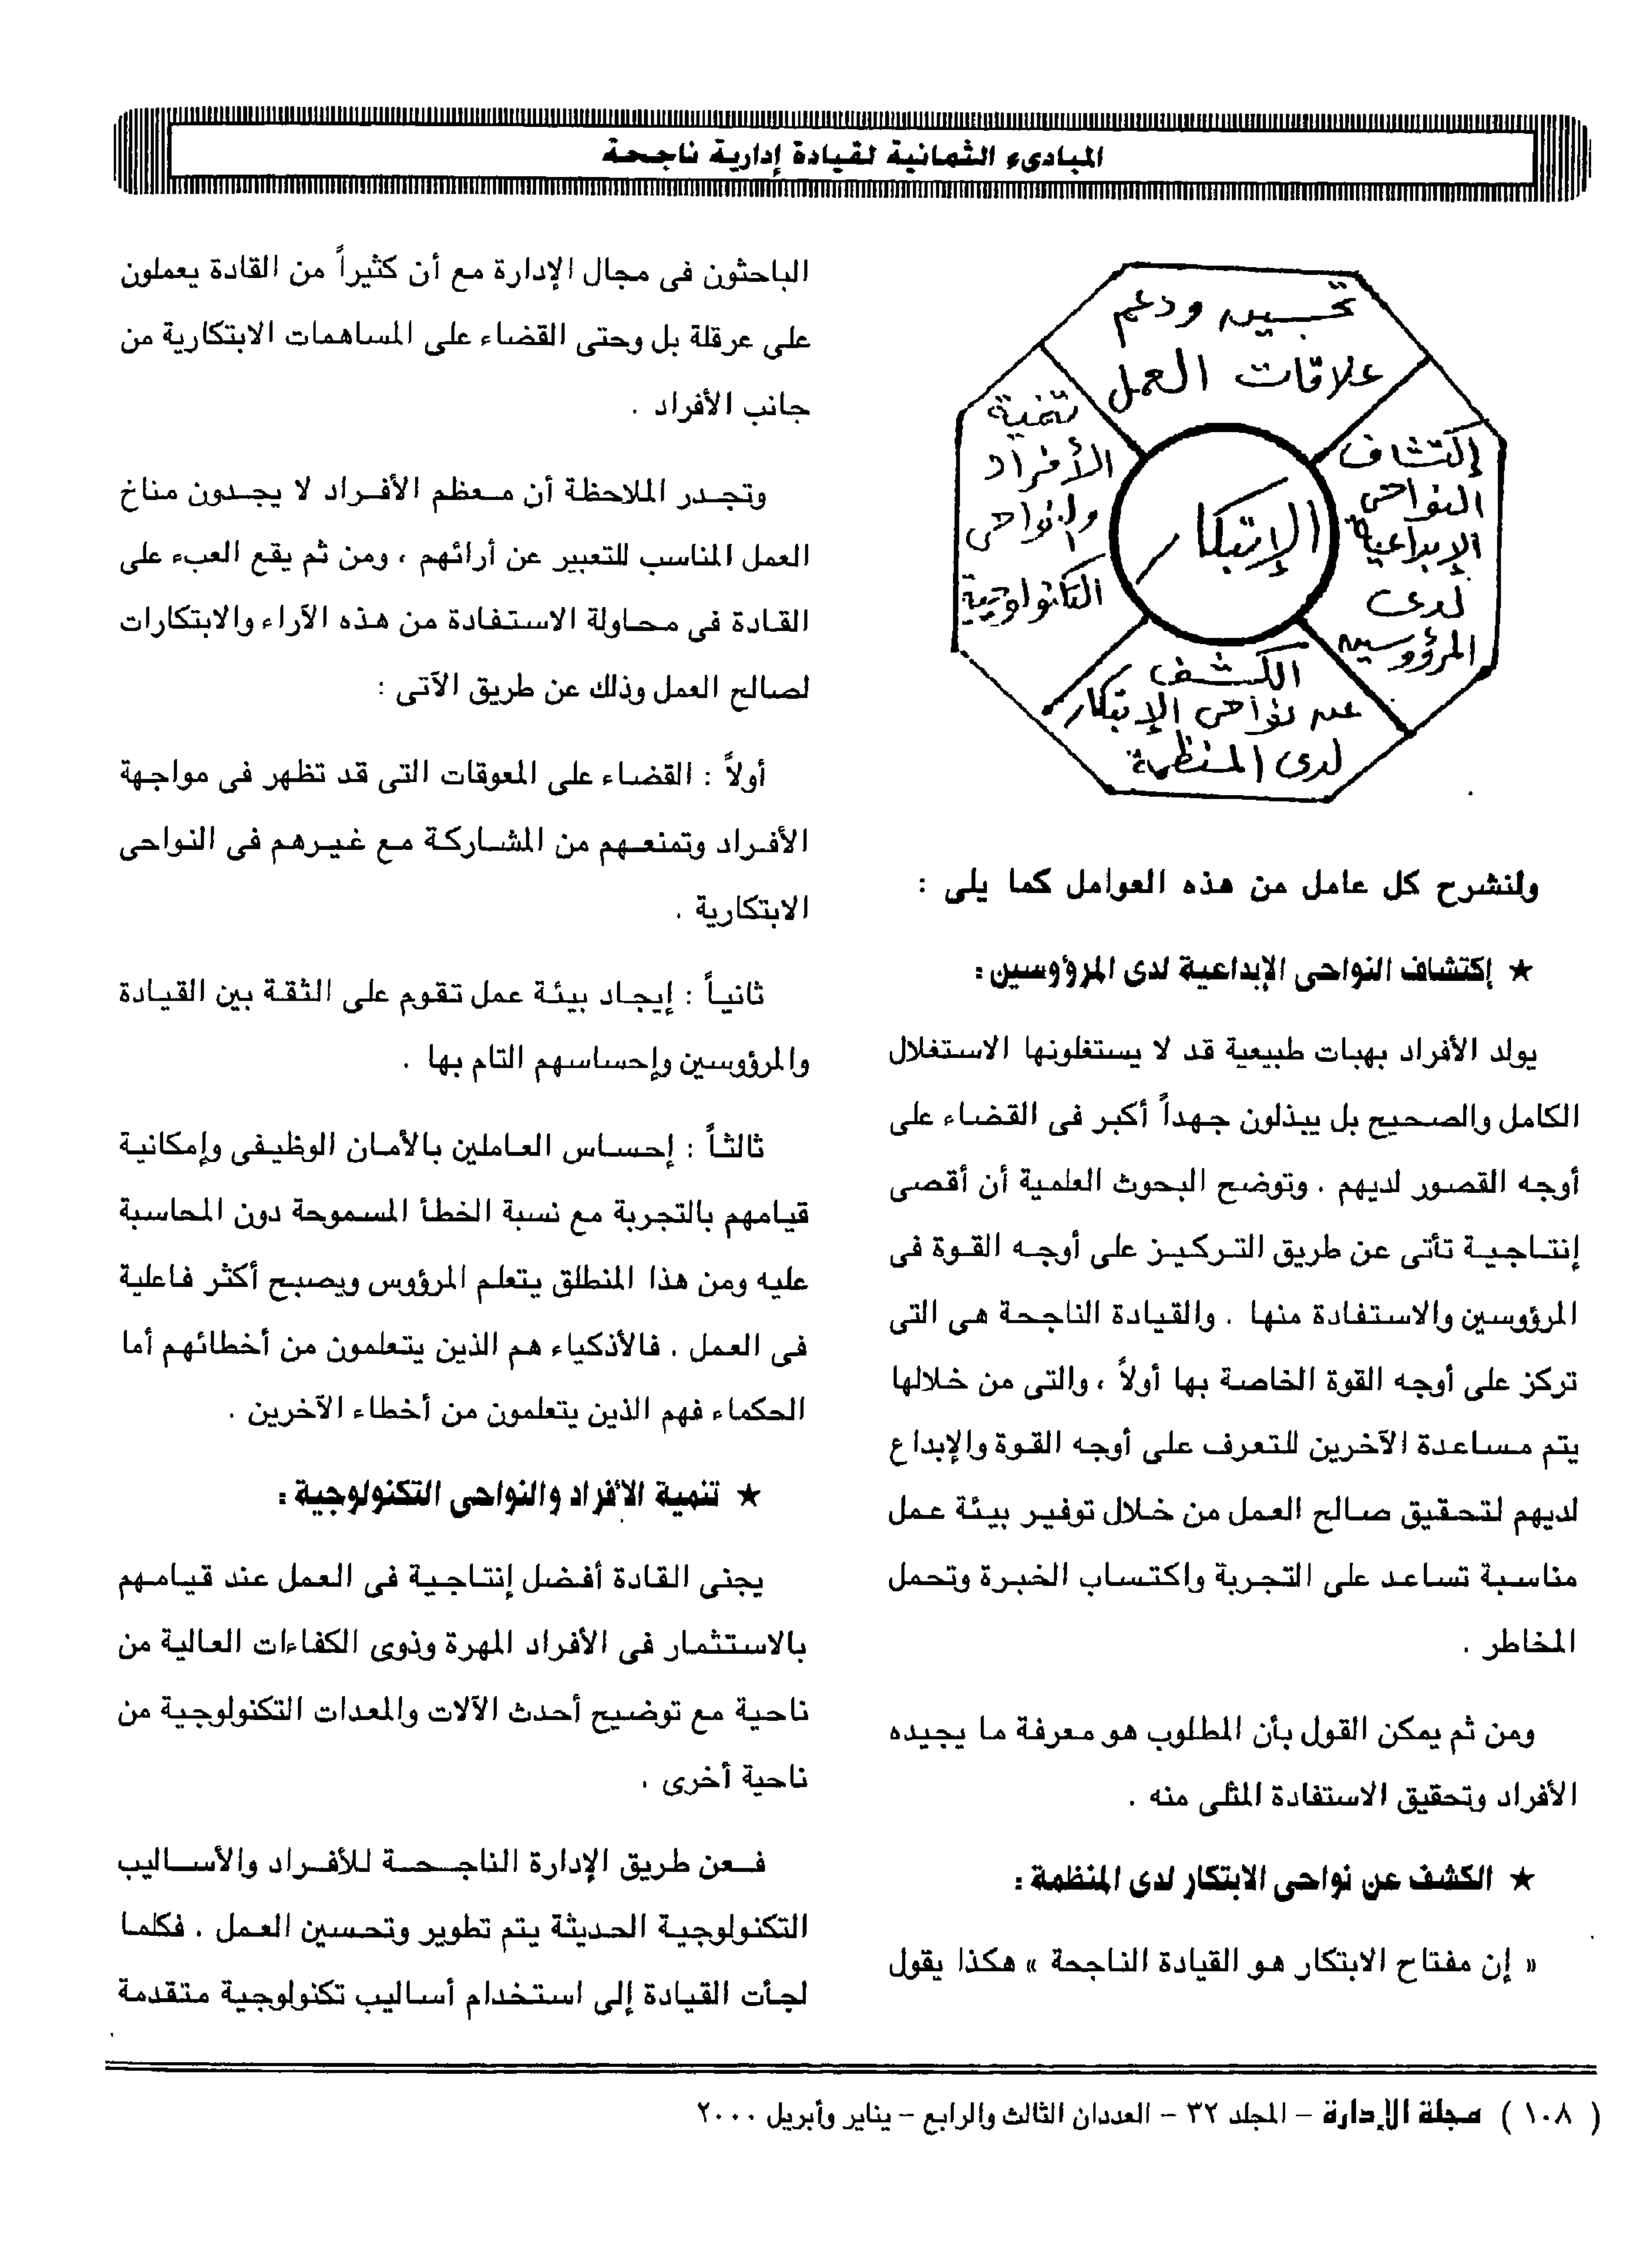 المبادىء الثمانية لقيادة إدارية ناجحة
تحسين ودعم
علاقات العمل
إكتشاف
النواحى
الإبداعية
لدى
المرؤوسين
الكشف
عن نواحى الإبتكار
لدى المنظمة
تنمية
الأفراد
والنواحى
التكنولوجية
الإبتكار
ولنشرح كل عامل من هذه العوامل كما يلى :
★ إكتشاف النواحى الإبداعية لدى المرؤوسين :
يولد الأفراد بهبات طبيعية قد لا يستغلونها الاستغلال
الكامل والصحيح بل يبذلون جهداً أكبر فى القضاء على
أوجه القصور لديهم . وتوضح البحوث العلمية أن أقصى
إنتاجية تأتى عن طريق التركيز على أوجه القوة فى
المرؤوسين والاستفادة منها . والقيادة الناجحة هى التى
تركز على أوجه القوة الخاصة بها أولاً ، والتى من خلالها
يتم مساعدة الآخرين للتعرف على أوجه القوة والإبداع
لديهم لتحقيق صالح العمل من خلال توفير بيئة عمل
مناسبة تساعد على التجربة واكتساب الخبرة وتحمل
المخاطر .
ومن ثم يمكن القول بأن المطلوب هو معرفة ما يجيده
الأفراد وتحقيق الاستفادة المثلى منه .
★ الكشف عن نواحى الابتكار لدى المنظمة :
« إن مفتاح الابتكار هو القيادة الناجحة » هكذا يقول
الباحثون فى مجال الإدارة مع أن كثيراً من القادة يعملون
على عرقلة بل وحتى القضاء على المساهمات الابتكارية من
جانب الأفراد .
وتجدر الملاحظة أن معظم الأفراد لا يجدون مناخ
العمل المناسب للتعبير عن أرائهم ، ومن ثم يقع العبء على
القادة فى محاولة الاستفادة من هذه الآراء والابتكارات
لصالح العمل وذلك عن طريق الآتى :
أولاً : القضاء على المعوقات التى قد تظهر فى مواجهة
الأفراد وتمنعهم من المشاركة مع غيرهم فى النواحى
الابتكارية .
ثانياً : إيجاد بيئة عمل تقوم على الثقة بين القيادة
والمرؤوسين وإحساسهم التام بها .
ثالثاً : إحساس العاملين بالأمان الوظيفى وإمكانية
قيامهم بالتجربة مع نسبة الخطأ المسموحة دون المحاسبة
عليه ومن هذا المنطلق يتعلم المرؤوس ويصبح أكثر فاعلية
فى العمل . فالأذكياء هم الذين يتعلمون من أخطائهم أما
الحكماء فهم الذين يتعلمون من أخطاء الآخرين .
★ تنمية الأفراد والنواحى التكنولوجية :
يجنى القادة أفضل إنتاجية فى العمل عند قيامهم
بالاستثمار فى الأفراد المهرة وذوى الكفاءات العالية من
ناحية مع توضيح أحدث الآلات والمعدات التكنولوجية من
ناحية أخرى .
فعن طريق الإدارة الناجحة للأفراد والأساليب
التكنولوجية الحديثة يتم تطوير وتحسين العمل . فكلما
لجأت القيادة إلى استخدام أساليب تكنولوجية متقدمة
( ١٠٨ ) مجلة الإدارة – المجلد ٣٢ – العددان الثالث والرابع – يناير وأبريل ٢٠٠٠